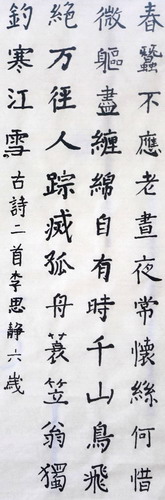 春蠶不應老晝夜常懷絲何惜
微軀盡纏綿自有時千山鳥飛
絕万徑人踪滅孤舟蓑笠翁獨
釣寒江雪古詩二首李思靜六歲